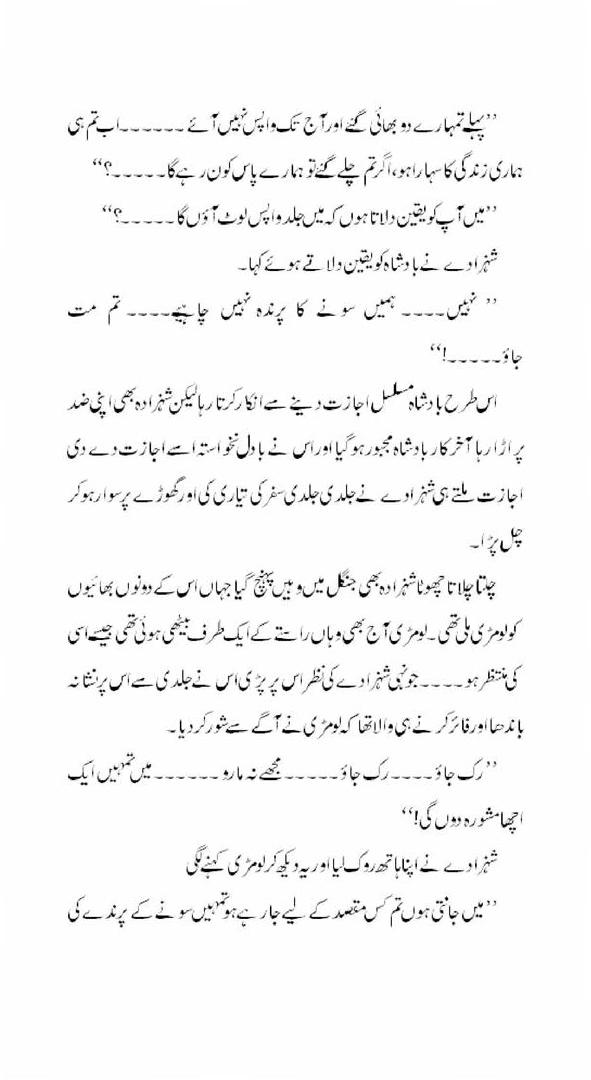 ’’پہلے تمہارے دو بھائی گئے اور آج تک واپس نہیں آئے ۔۔۔۔۔۔ اب تم ہی
ہماری زندگی کا سہارا ہو، اگر تم چلے گئے تو ہمارے پاس کون رہے گا ۔۔۔۔۔؟‘‘
’’میں آپ کو یقین دلاتا ہوں کہ میں جلد واپس لوٹ آؤں گا ۔۔۔۔۔؟‘‘
شہزادے نے بادشاہ کو یقین دلاتے ہوئے کہا۔
’’نہیں ۔۔۔۔ ہمیں سونے کا پرندہ نہیں چاہیے ۔۔۔۔ تم مت
جاؤ ۔۔۔۔۔!‘‘
اس طرح بادشاہ مسلسل اجازت دینے سے انکار کرتا رہا لیکن شہزادہ بھی اپنی ضد
پر اڑا رہا آخر کار بادشاہ مجبور ہو گیا اور اس نے بادل نخواستہ اسے اجازت دے دی
اجازت ملتے ہی شہزادے نے جلدی جلدی سفر کی تیاری کی اور گھوڑے پر سوار ہو کر
چل پڑا۔
چلتا چلاتا چھوٹا شہزادہ بھی جنگل میں وہیں پہنچ گیا جہاں اس کے دونوں بھائیوں
کو لومڑی ملی تھی۔ لومڑی آج بھی وہاں راستے کے ایک طرف بیٹھی ہوئی تھی جیسے اسی
کی منتظر ہو ۔۔۔۔ جونہی شہزادے کی نظر اس پر پڑی اس نے جلدی سے اس پر نشانہ
باندھا اور فائر کرنے ہی والا تھا کہ لومڑی نے آگے سے شور کر دیا۔
’’رک جاؤ ۔۔۔۔ رک جاؤ ۔۔۔۔۔ مجھے نہ مارو ۔۔۔۔۔۔ میں تمہیں ایک
اچھا مشورہ دوں گی!‘‘
شہزادے نے اپنا ہاتھ روک لیا اور یہ دیکھ کر لومڑی کہنے لگی
’’میں جانتی ہوں تم کس مقصد کے لیے جا رہے ہو تمہیں سونے کے پرندے کی